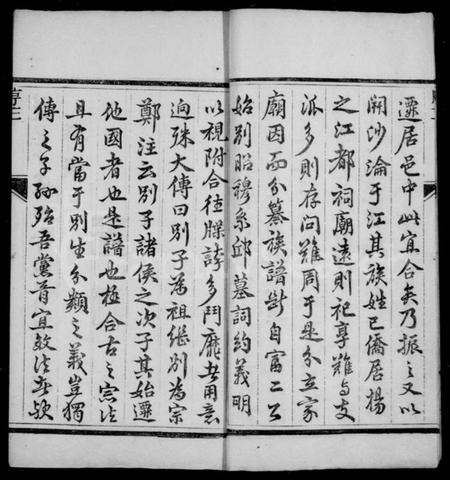 遷居邑中此宜合矣乃振之又以
開沙淪于江其族姓已僑居揚
之江都祠廟遠則祀享難与支
派多則存问難周于是分立家
廟因而分纂族譜斷自富二公
始别昭穆系邱墓詞約義明
以視附合往牒誇多鬥靡者用意
逈殊大傳曰别子為祖继别為宗
鄭注云别子諸侯之次子其始遷
他國者也是譜也極合古之宗法
且有當于别生分類之義豈獨
傳之子孫殆吾黨胥宜效法者歟